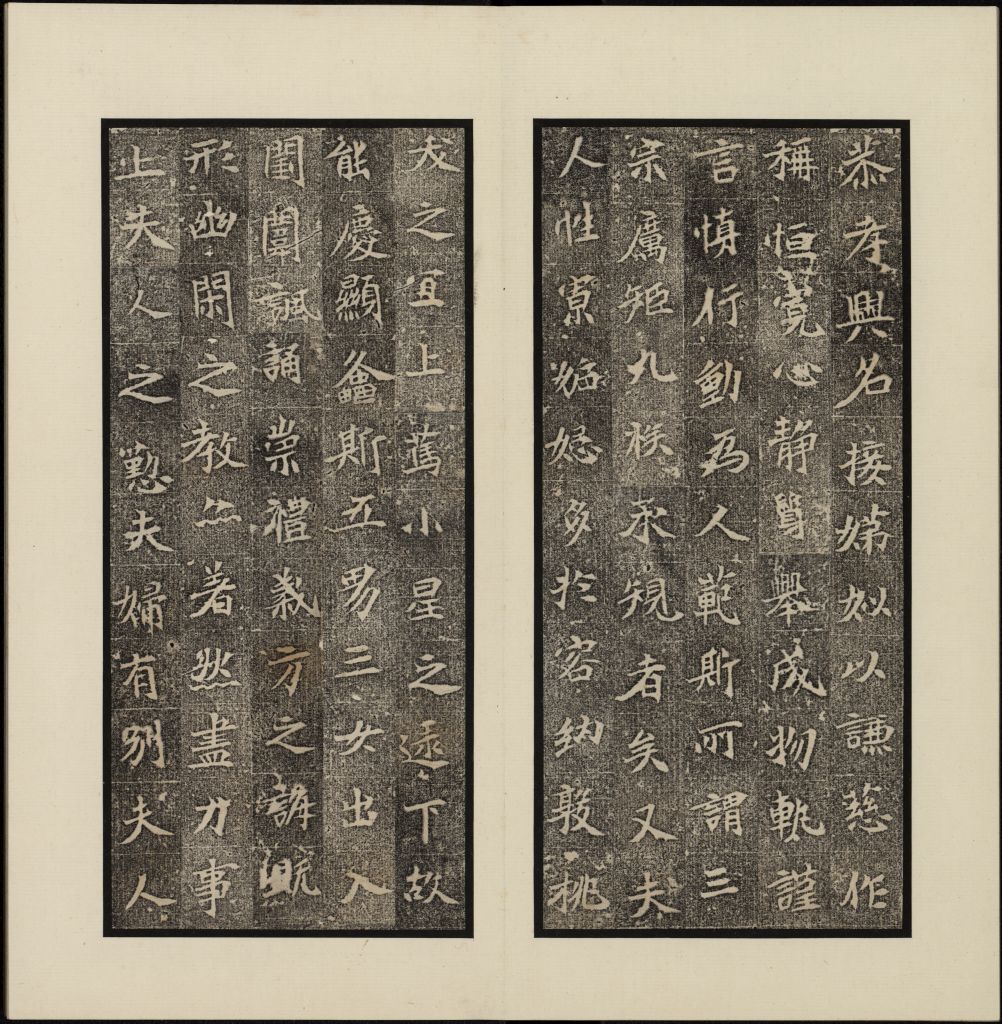 恭孝興名接娣姒以謙慈作
稱恒寬心靜舉成物軌謹
言慎行動為人範斯所謂三
宗厲矩九族承規者矣又夫
人性寡妬媳多於容納敦桃
夭之宜上篤小星之逮下故
能慶顯螽斯五男三女出入
閨闈諷誦崇禮義方之誨既
形幽閑之教亦著然盡力事
上夫人之懃夫婦有別夫人